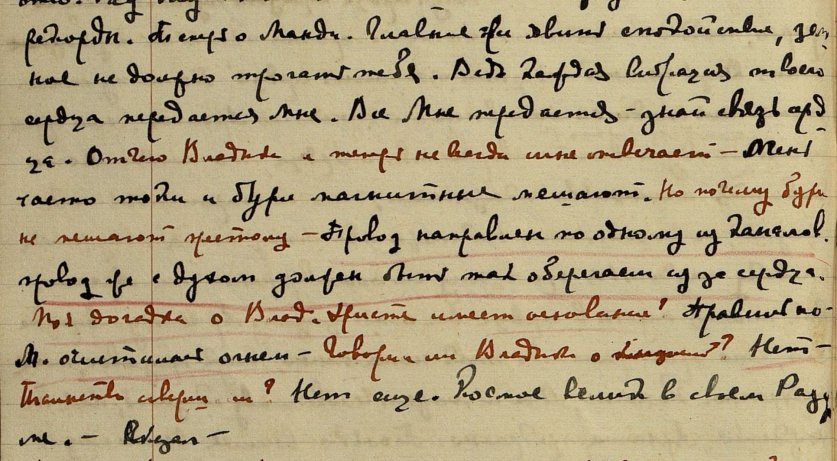 рекорды. Теперь о Манди. Главное же явит спокойствие, зем
ное не должно трогать тебя. Ведь каждая вибрация твоего
сердца передается Мне. Все Мне передается – знай связь серд
ца. Отчего Владыка и теперь не всегда мне отвечает – Меня
часто токи и бури магнитные мешают. Но почему бури
не мешают прежнему – Провод направлен по одному из каналов.
провод же с духом должен быть так оберегаем из за сердца.
Моя догадка о Влад. Христе имеет основание? Правильно –
М. очистилась огнем – Говорил ли Владыка о ? Нет –
Таинство ли? Нет еще. Космос велик в своем Разу
ме. –